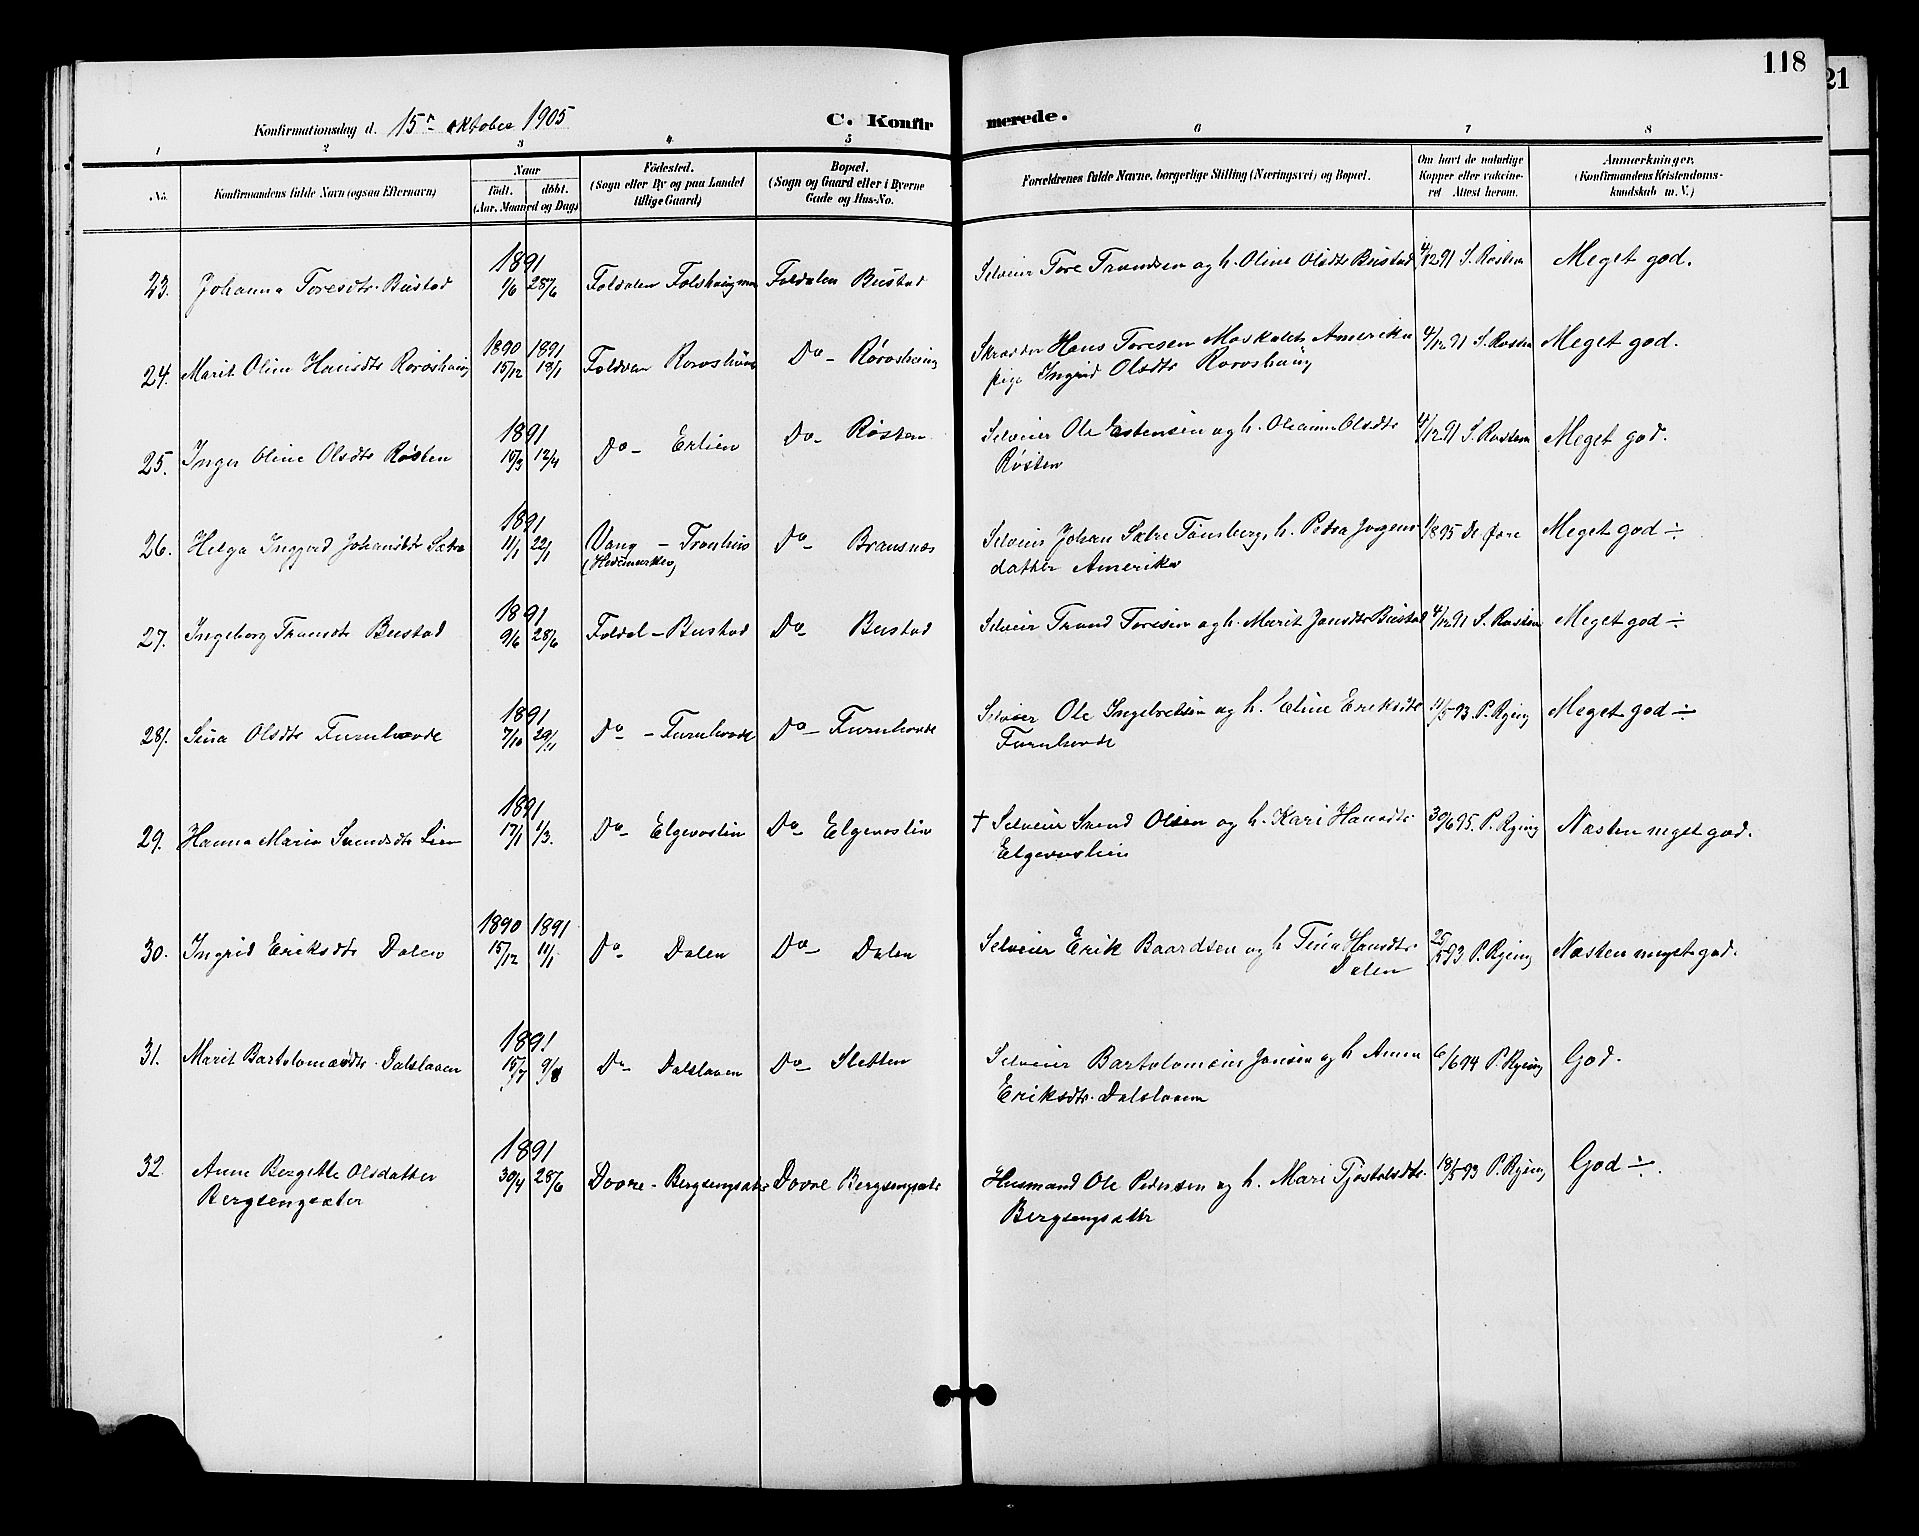 118
21
Konfirmationsdag d. 15de oktober 1905
C. Konfirmerede.
1 2 3 4 5 6 7 8
No. Konfirmandens fulde Navn (ogsaa Efternavn) Naar født. døbt. (Aar, Maaned og Dag) Fødested. (Sogn eller By og paa Landet tillige Gaard) Bopæl. (Sogn og Gaard eller i Byerne Gade og Hus-No. Forældrenes fulde Navne, borgerlige Stilling (Næringsvei) og Bopæl. Om havt de naturlige Kopper eller vaccineret Attest herom. Anmærkninger. (Konfirmandens Kristendomskundskab m. V.)
23. Johanna Toresdtr. Bustad 1891 1/6 28/6 Foldalen Foldalen Bustad Selveier Tore Trondsen og h. Oline Olsdtr Bustad 4/12 91 S. Røsten Meget god.
24. Marit Oline Hansdtr Røroshaug 1890 15/12 1891 18/1 Foldalen Røroshaug Do- Røroshaug Skrædder Hans Toresen Moskalet Amerika
pige Ingrid Olsdtr Røroshaug 4/12 91 S. Røsten Meget god.
25. Inger Oline Olsdtr Røsten 1891 15/3 12/4 Do- Erlien Do- Røsten Selveier Ole Estensen og h. Oleanna Olsdtr
Røsten 4/12 91 S. Røsten Meget god.
26. Helga Ingvord Johansdtr Sætre 1891 11/1 22/1 Vang - Tronhus
(Hedemarken) Do- Bransnes Selveier Johan Sætre Tønsberg, h. Petra Jørgens
datter Amerika 1/8 95 De Øvre Meget god ÷
27. Ingeborg Trondsdtr Bustad 1891 9/6 28/6 Foldal - Bustad Do- Bustad Selveier Trond Toresen og h. Marit Jonsdtr Bustad 4/12 91 S. Røsten Meget god ÷
28. Sina Olsdtr Furuhovde 1891 7/10 29/11 Do - Furuhovde Do- Furuhovde Selveier Ole Ingebretsen og h. Eline Eriksdtr
Furuhovde 11/5 93 P. Ryeng Meget god ÷
29. Hanna Marie Svendsdtr Lien 1891 17/1 1/3. Do- Elgevaslien Do- Elgevaslien † Selveier Svend Olsen og h. Kari Hansdtr
Elgevaslien 30/6 95. P. Ryeng Næsten meget god.
30. Ingrid Eriksdtr Dalen 1890 15/12 1891 11/1 Do- Dalen Do- Dalen Selveier Erik Baardsen og h Tina Hansdtr
Dalen 25/5 93 P. Ryeng Næsten meget god.
31. Marit Bartolomæusdtr. Dalslaaen 1891 15/7 9/8 Do- Dalslaaen Do- Sletten Selveier Bartolomæus Jonsen og h Anna
Eriksdtr. Dalslaaen 6/6 94 P. Ryeng God.
32. Anne Bergitte Olsdatter
Bergsengsæter 1891 30/4 28/6 Dovre - Bergsengsæter Dovre Bergsengsæter Husmand Ole Pedersen og h. Mari Tjøstolsdtr.
Bergsengsætr 18/5 93 P. Ryeng God ÷.